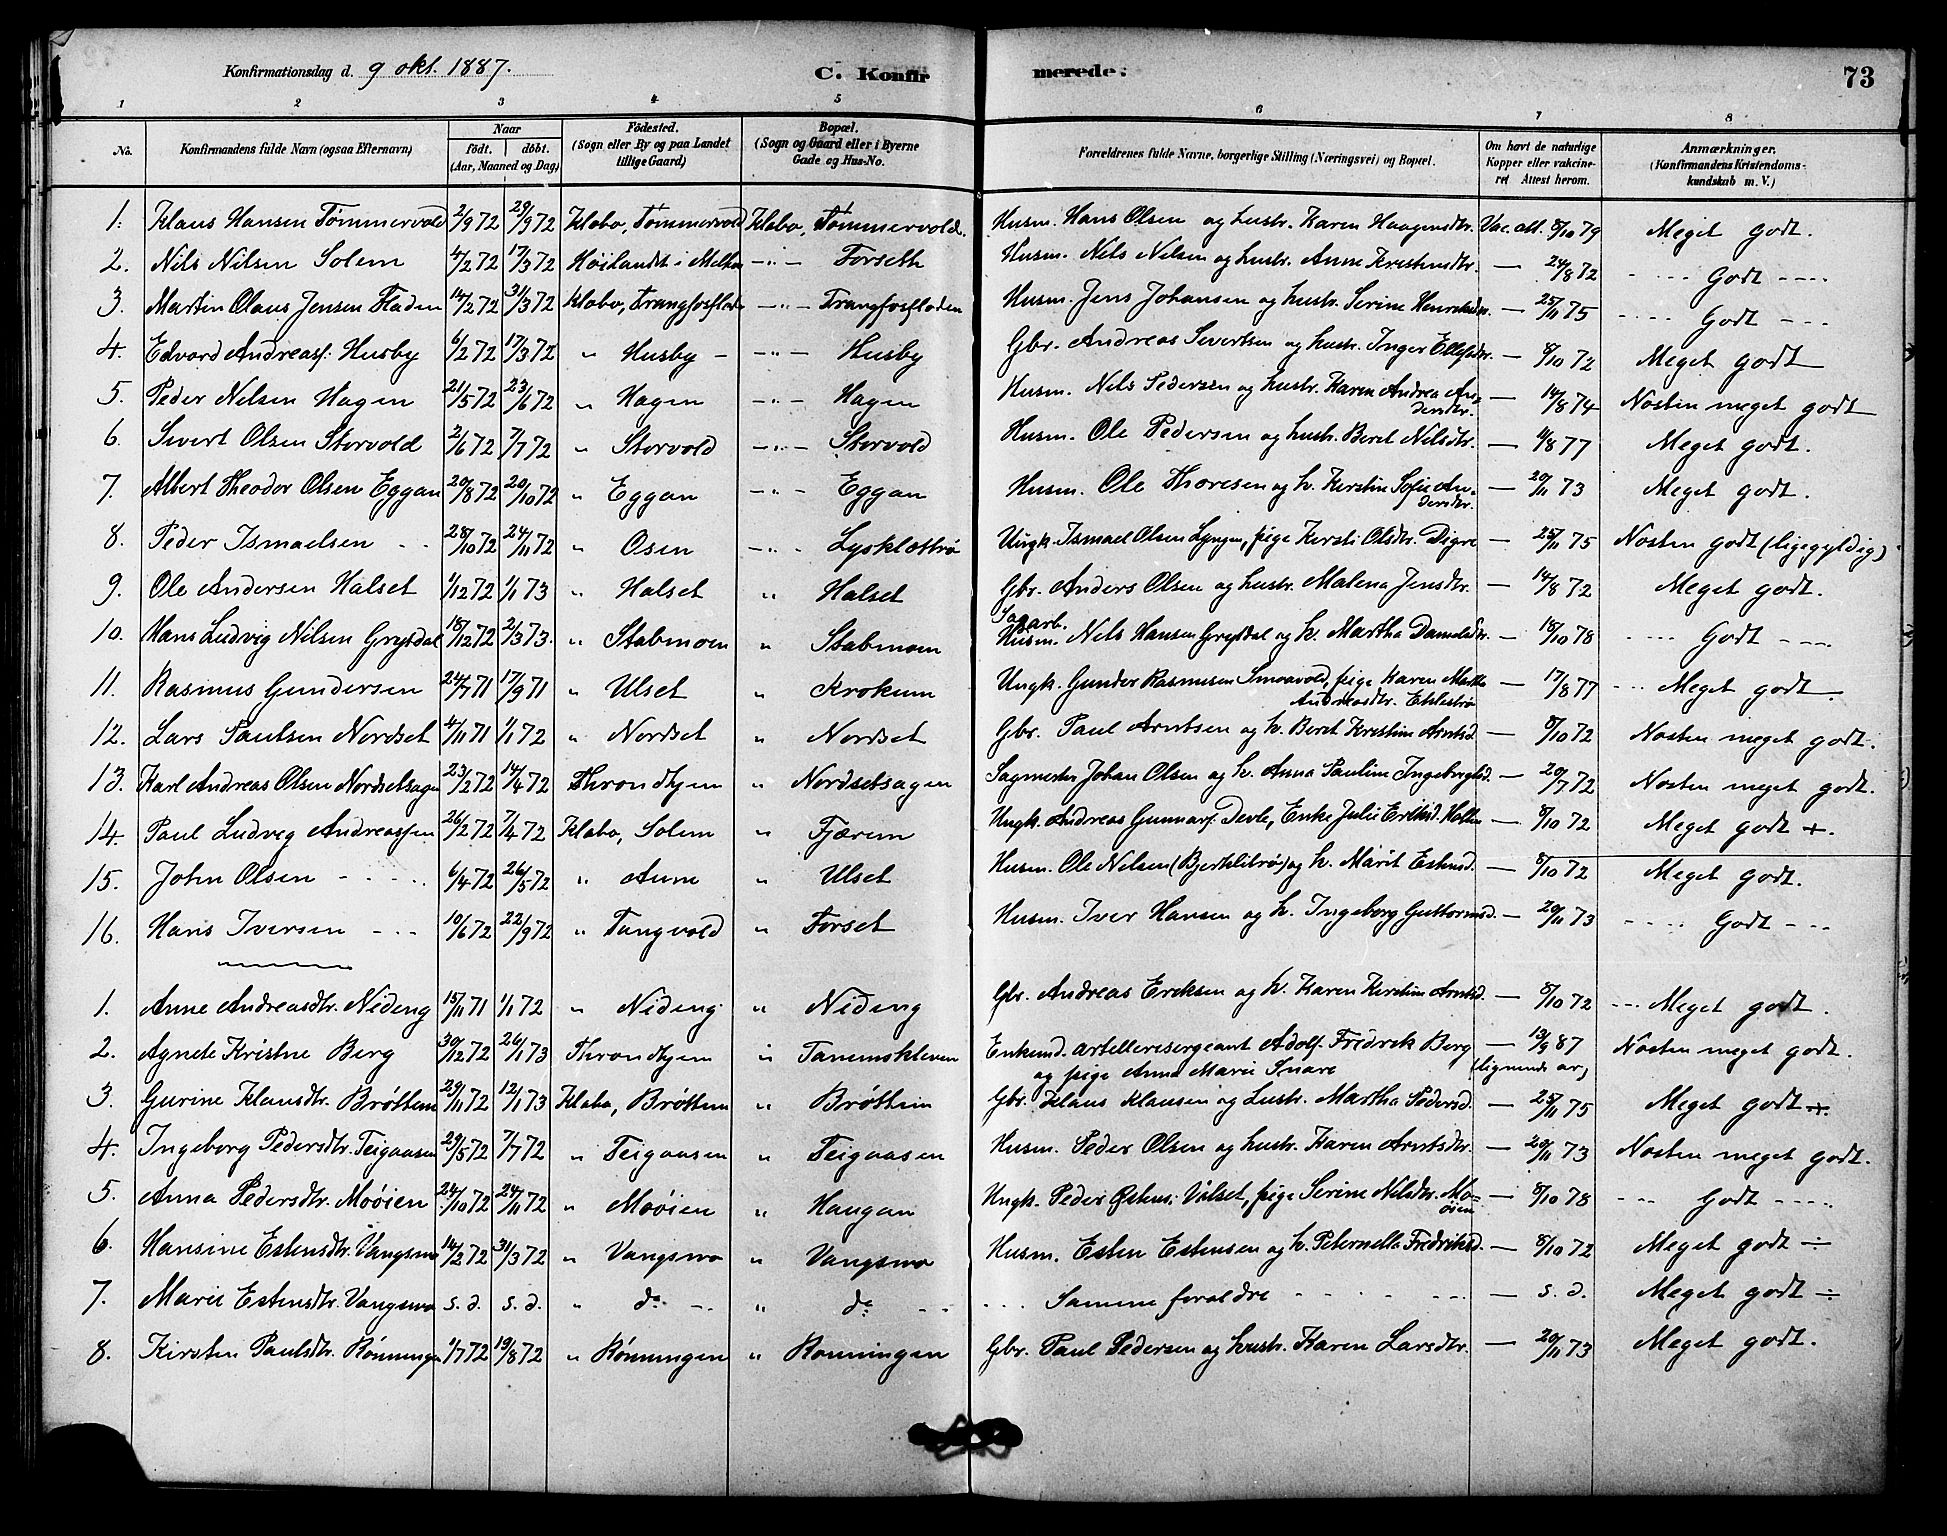 Konfirmationsdag d. 9 okt. 1887. C. Konfirmerede. 73
1 2 3 4 5 6 7 8
No. Konfirmandens fulde Navn (ogsaa Efternavn) Naar født. døbt. (Aar, Maaned og Dag) Fødested. (Sogn eller By og paa Landet tillige Gaard) Bopæl. (Sogn og Gaard eller i Byerne Gade og Hus-No. Forældrenes fulde Navne, borgerlige Stilling (Næringsvei) og Bopæl. Om havt de naturlige Kopper eller vakcineret Attest herom. Anmærkninger. (Konfirmandens Kristendomskundskab m. V.)
1. Klaus Hansen Tømmervold 2/9 72 29/9 72 Klæbo, Tømmervold Klæbo, Tømmervold. Husm. Hans Olsen og hustr. Karen Haagensdtr. Vac. att. 8/10 79 Meget godt.
2. Nils Nilsen Solem 4/2 72 17/3 72 Høilandt i Melhus -"- Forseth Husm. Nels Nelsen og hustr. Anne Kristensdtr. — 24/8 72 - - - Godt - - -
3. Martin Olaus Jensen Fladen 14/2 72 31/3 72 Klæbo, Trangfosfladen -"- Trangfosfladen Husm. Jens Johansen og hustr. Serine Henriksdtr. — 25/11 75 - - - Godt - - -
4. Edvard Andreasf. Husby 6/2 72 17/3 72 " Husby - -"- Husby Gbr. Andreas Sivertsen og hustr. Inger Ellefsdtr. — 8/10 72 Meget godt
5. Peder Nilsen Hagen 21/5 72 23/6 72 " Hagen -"- Hagen Husm. Nels Pedersen og hustr. Karen Andrea Andersdtr. — 14/8 74 Næsten meget godt
6. Sivert Olsen Storvold 2/6 72 7/7 72 " Storvold -"- Storvold Husm. Ole Pedersen og hustr. Beret Nilsdtr. — 4/8 77 Meget godt.
7. Albert Theodor Olsen Eggan 20/8 72 20/10 72 " Eggan -"- Eggan Husm. Ole Thoresen og h. Kerstine Sofie Andersdtr. — 20/11 73 Meget godt.
8. Peder Ismaelsen - - 28/10 72 24/11 72 " Osen -"- Lysklættrø Ungk. Ismael Olsen Lyngen, pige Kersti Olsdtr. Digre — 25/11 75 Næsten godt (ligegyldig)
9. Ole Andersen Halset 1/12 72 1/1 73 " Halset " Halset Gbr. Anders Olsen og hustr. Malena Jensdtr. — 14/8 72 Meget godt.
10. Hans Ludvig Nilsen Grytdal 18/12 72 2/3 73. " Stabmoen " Stabmoen Sagarb. Husm. Nels Hansen Grytdal og h. Martha Danielsdtr. — 18/10 78 - - - Godt - - -
11. Rasmus Gundersen 24/7 71 17/9 71 " Ulset " Krokum Ungk. Gunder Rasmusen Smaavold, pige Karen Martha Andreasdtr. — 17/8 77 - - - Meget godt -
12. Lars Paulsen Nordset 4/11 71 1/1 72 " Nordset " Nordset Gbr. Paul Arntsen og h. Beret Kristine Arntsd. — 8/10 72 Næsten meget godt.
13. Karl Andreas Olsen Nordsetsagen 23/2 72 14/4 72 Throndhjem " Nordsetsagen Sagmester Johan Olsen og h. Anna Pauline Ingebrigtsd. — 20/7 72 Næsten meget godt.
14. Paul Ludvig Andreassen 26/2 72 7/4 72 Klæbo, Solem " Fjærem Ungk. Andreas Gunnarf. Devle, Enke Julie Eriksd. — 8/10 72 Meget godt +.
15. John Olsen - - - 6/4 72 26/5 72 " Aune " Ulset Husm. Ole Nelsen (Bjerklitrø) og h. Marit Estensd. — 8/10 72 Meget godt.
16. Hans Iversen - - - 10/6 72 22/9 72 " Tangvold " Forset Husm. Iver Hansen og h. Ingeborg Guttormsd. — 20/11 73 - - - Godt - - -
1. Anne Andreasdtr. Niðeng 15/11 71 1/1 72 " Nideng " Nideng Gbr. Andreas Ereksen og h. Karen Kirstine Arntsd. — 8/10 72 - - - Meget godt.
2. Agnete Kristne Berg 30/12 72 26/1 73 Throndhjem " Tanemskleven Enkemd. artellerisergeant Adolf Fredrek Berg og pige Anna Marie Snare — 13/9 87 Næsten meget godt.
3. Gurine Klausdtr. Brøttem 29/11 72 12/1 73 Klæbo, Brøttem " Brøttem Gbr. Klaus Klausen og hustr. Martha Pedersd. — 25/11 75 Meget godt +.
4. Ingeborg Pedersdtr. Teigaasen 29/5 72 7/7 72 " Teigaasen " Teigaasen Husm. Peder Olsen og hustr. Karen Arntsdtr. — 20/11 73 Næsten meget godt.
5. Anna Pedersdtr. Moøien 24/10 72 24/11 72 " Moøien " Haugan Ungk. Peder Ulset, pige Serine Nilsdtr. Moøien — 8/10 78 - - Godt - - -
6. Hansine Estensdtr. Vangsmo 14/2 72 31/3 72 " Vangsmo " Vangsmo Husm. Esten Estensen og h. Peternella Fredriksd. — 8/10 72 Meget godt ÷
7. Marie Estensdtr. Vangsmo s. d. s. d. " do - - " do - - - - - Samme forældre - - - - — s. d. Meget godt ÷
8. Kirsten Paulsdtr. Rønningen 1/7 72 19/8 72 " Rønningen " Rønningen Gbr. Paul Pedersen og hustr. Karen Larsdtr. — 20/11 73 Meget godt.